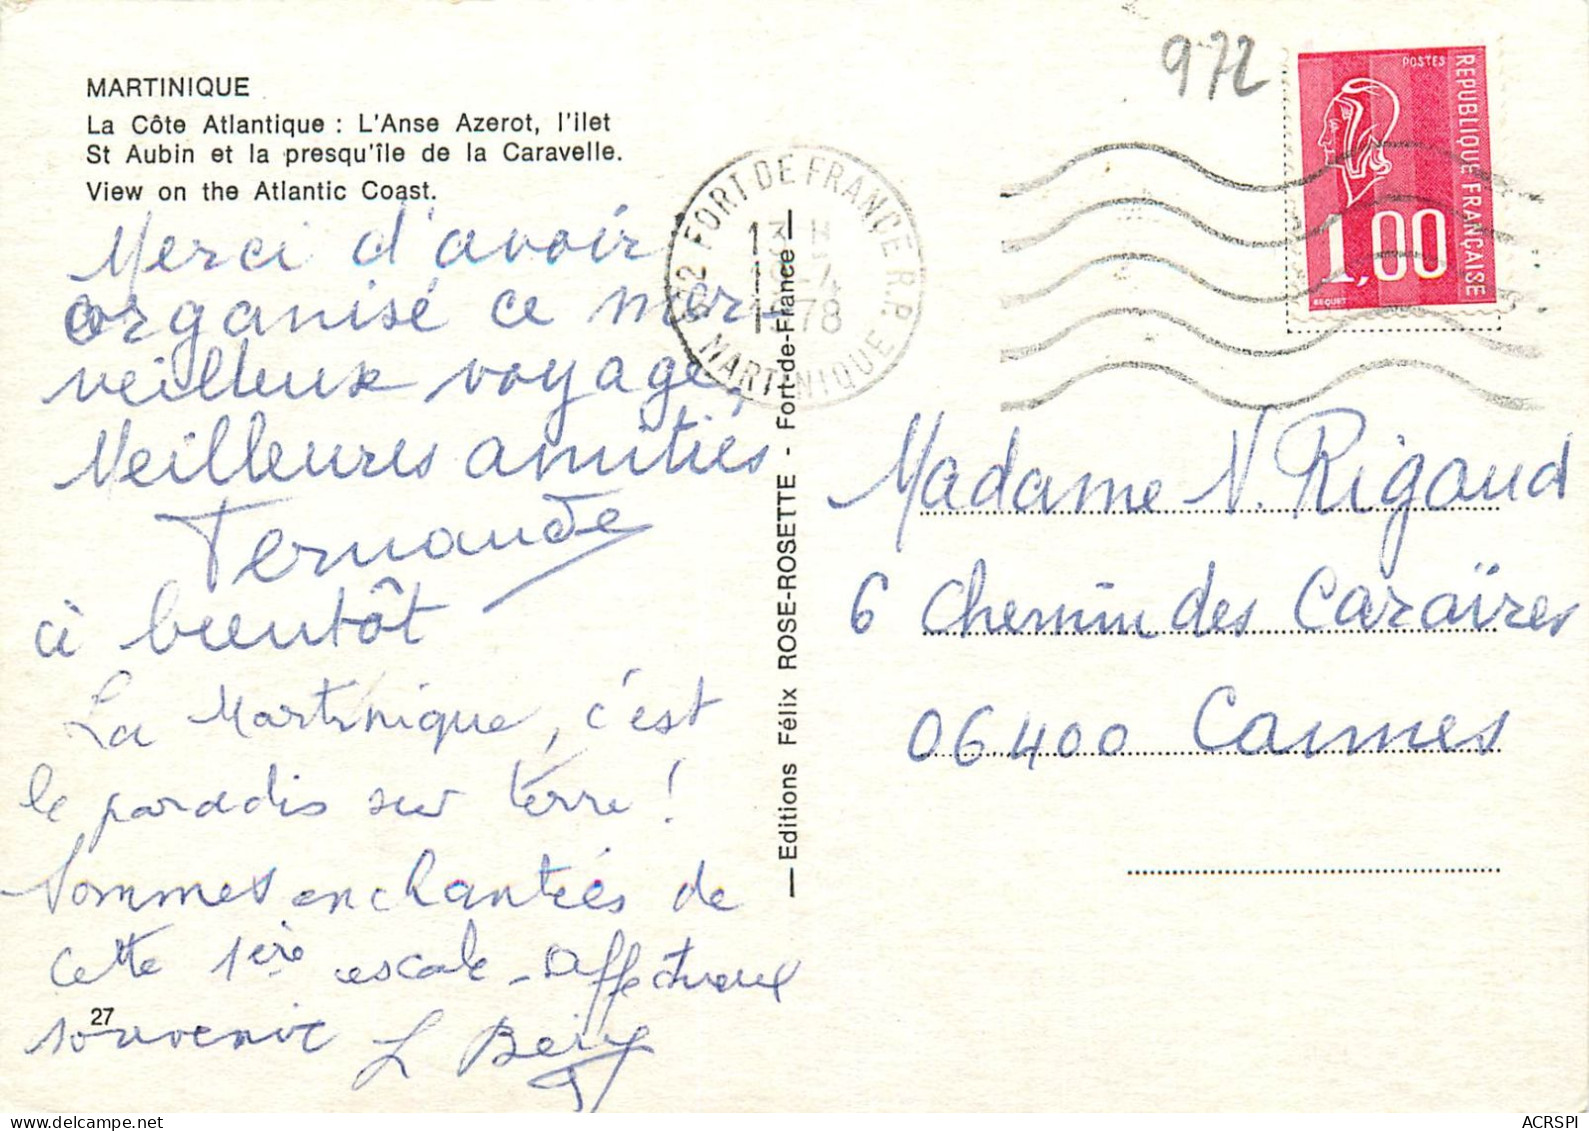 972
POSTES
REPUBLIQUE FRANÇAISE
1,00
BEQUET
MARTINIQUE
La Côte Atlantique : L'Anse Azerot, l'ilet
St Aubin et la presqu'île de la Caravelle.
View on the Atlantic Coast.
972 FORT DE FRANCE R.P.
13 H
-4
1978
MARTINIQUE
Merci d'avoir
organisé ce mer-
veilleux voyage,
Meilleures amitiés
Fernande
à bientôt
La Martinique, c'est
le paradis sur terre !
Sommes enchantées de
cette 1ère escale - Affectueux
souvenir L
27
— Editions Félix ROSE-ROSETTE - Fort-de-France —
Madame N. Rigaud
6 Chemin des Caraïres
06400 Cannes
ACRSPI